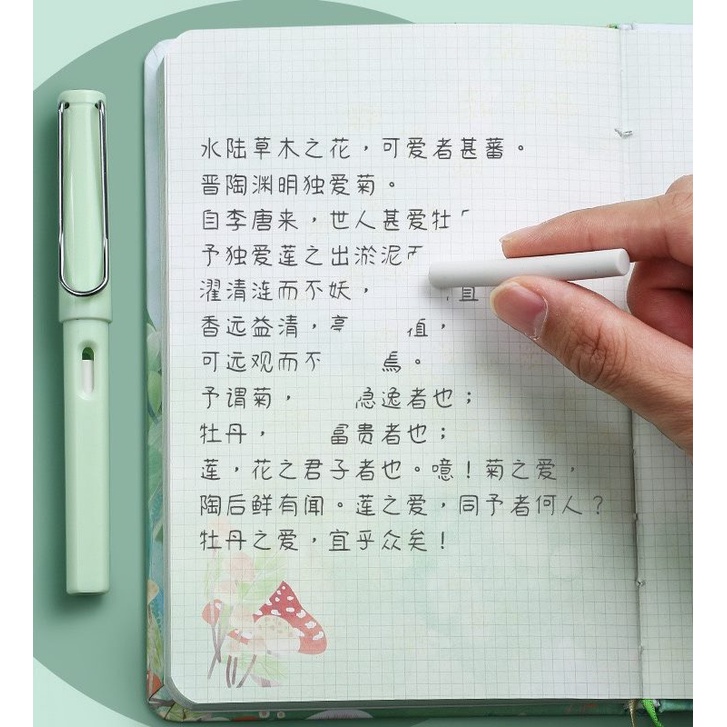 水陆草木之花，可爱者甚蕃。
晋陶渊明独爱菊。
自李唐来，世人甚爱牡
予独爱莲之出淤泥
濯清涟而不妖，直
香远益清，亭 植，
可远观而不 焉。
予谓菊， 隐逸者也；
牡丹， 富贵者也；
莲，花之君子者也。噫！菊之爱，
陶后鲜有闻。莲之爱，同予者何人？
牡丹之爱，宜乎众矣！